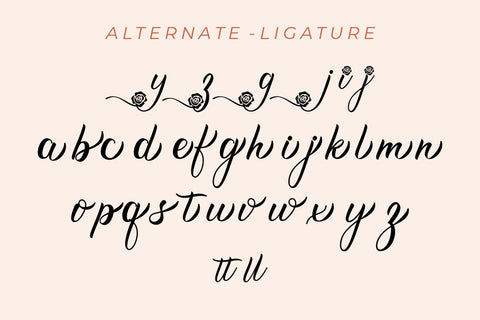 ALTERNATE - LIGATURE
y z g j i j
a b c d e f g h i j k l m n
o p q s t u v w x y z
tt ll